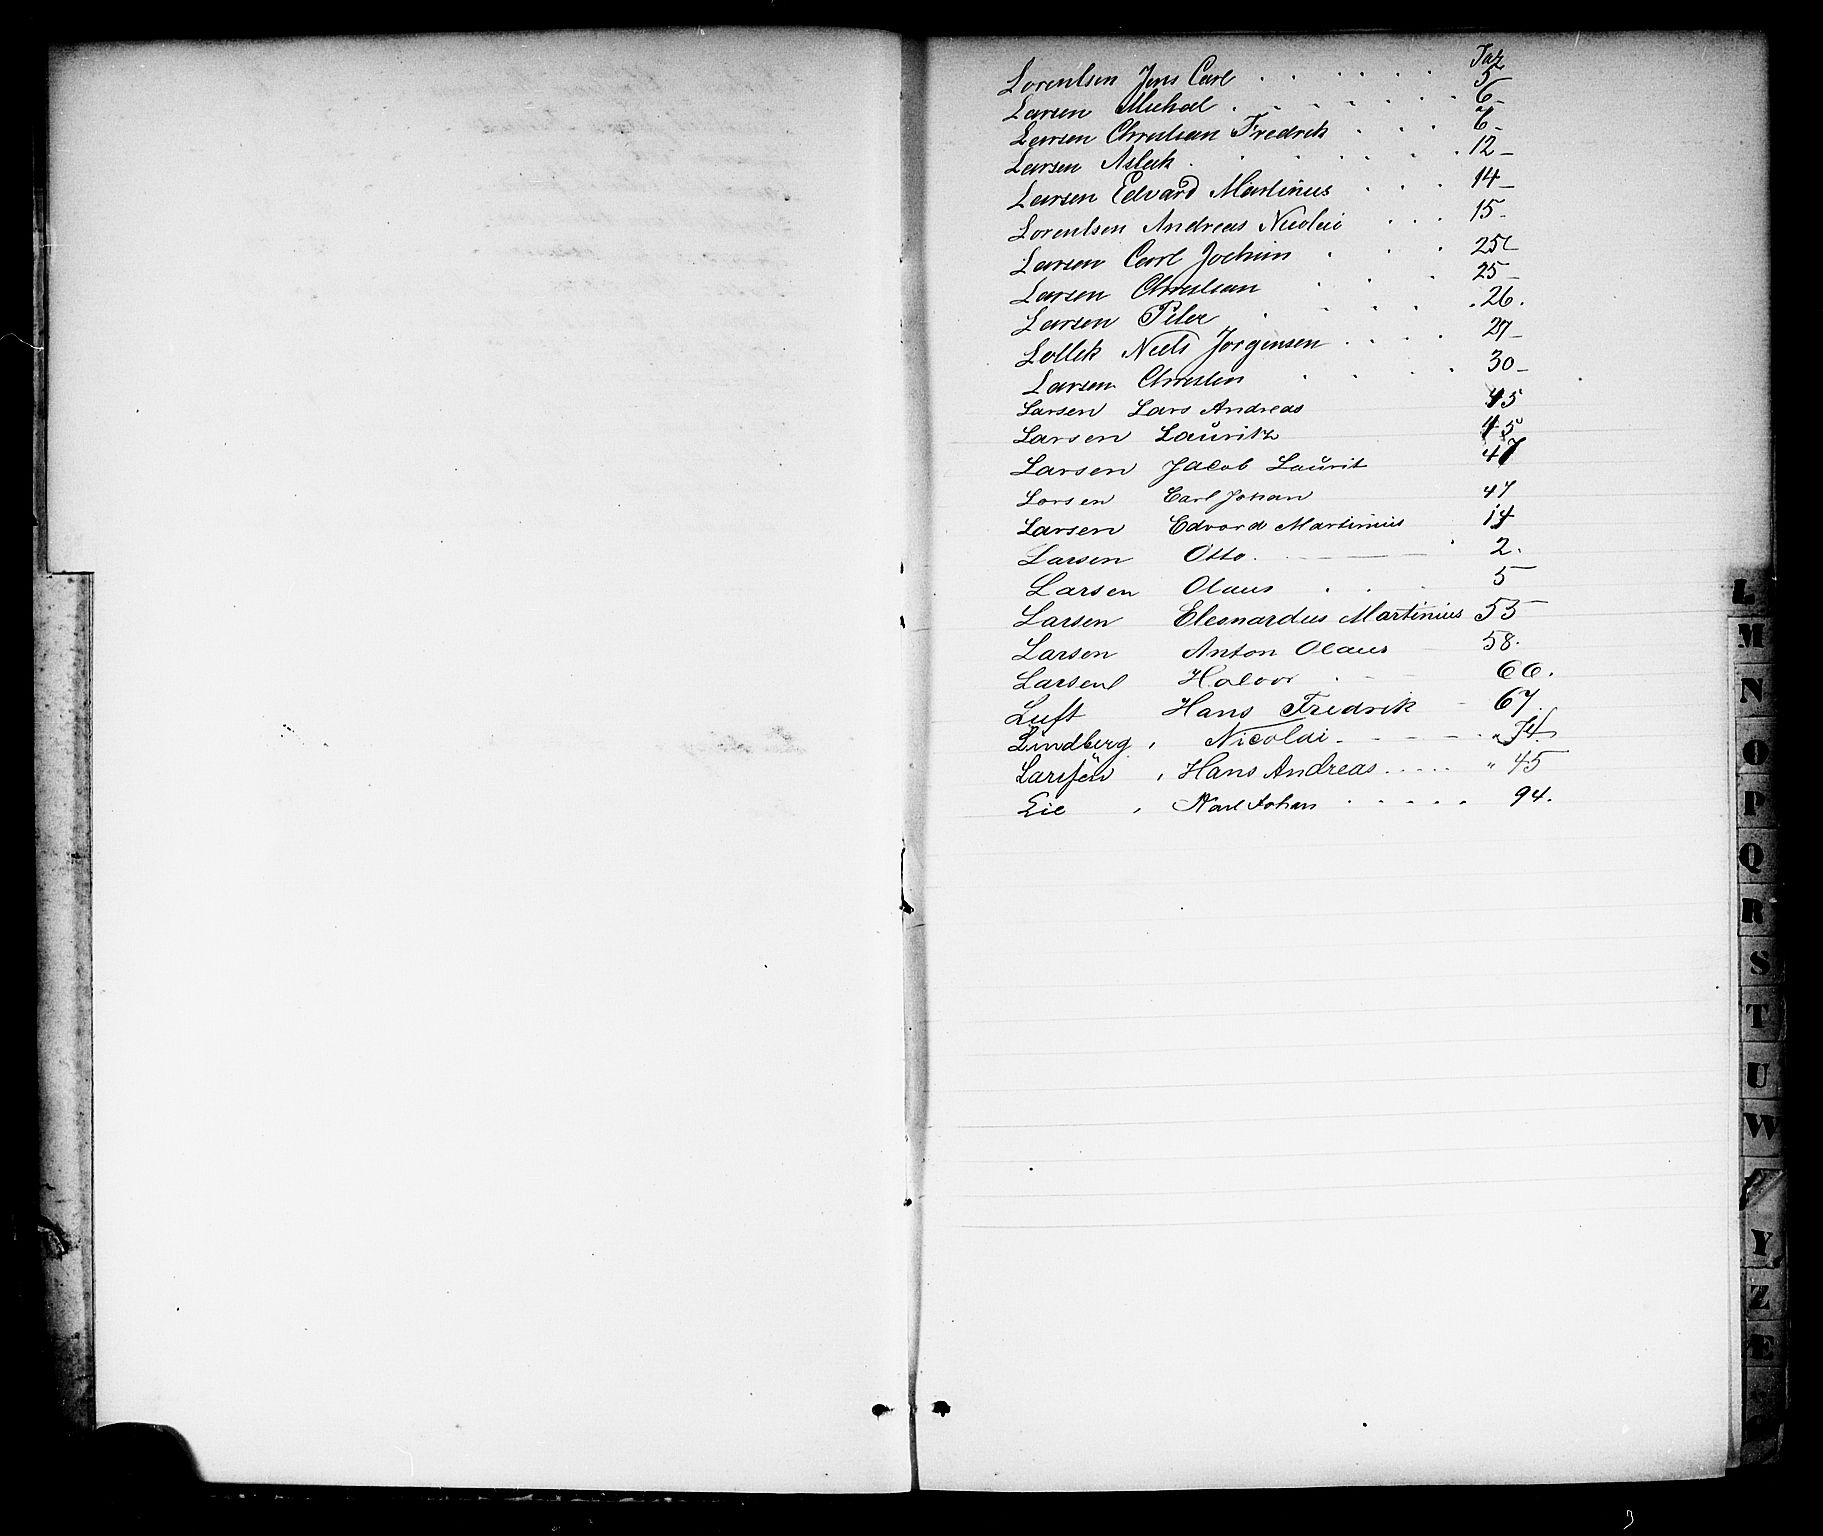 Pag
Lorentsen Jens Carl 5
Larsen Michal 6
Larsen Christian Fredrik 6
Larsen Aslak 12
Larsen Edvard Martinius 14
Lorentsen Andreas Nicolai 15
Larsen Carl Jochim 25
Larsen Christian 25
Larsen Peter 26
Niels Jorgensen 27
Larsen Christen 30
Larsen Lars Andreas 45
Larsen Lauritz 45
Larsen Jacob Laurit 47
Larsen Carl Johan 47
Larsen Edvard Martinius 14
Larsen Otto 2
Larsen Olaus 5
Larsen Martinius 55
Larsen Anton Olaus 58
Larsen Halvor 66
Luft Hans Fredrik 67
Lindberg, Nicolai 74
Larsen, Hans Andreas " 45
Lie, Karl Johan 94
L
M
N
O
P
Q
R
S
T
U
W
Y
Z
Æ